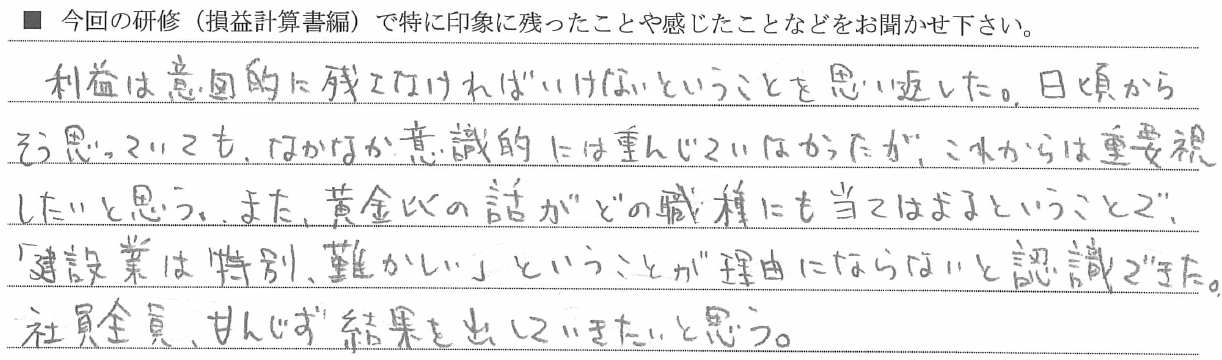 ■ 今回の研修（損益計算書編）で特に印象に残ったことや感じたことなどをお聞かせ下さい。
利益は意図的に残さなければいけないということを思い返した。日頃から
そう思っていても、なかなか意識的には重んじていなかったが、これからは重要視
したいと思う。また、黄金比の話がどの職種にも当てはまるということで、
「建設業は特別、難かしい」ということが理由にならないと認識できた。
社員全員、甘んじず結果を出していきたいと思う。